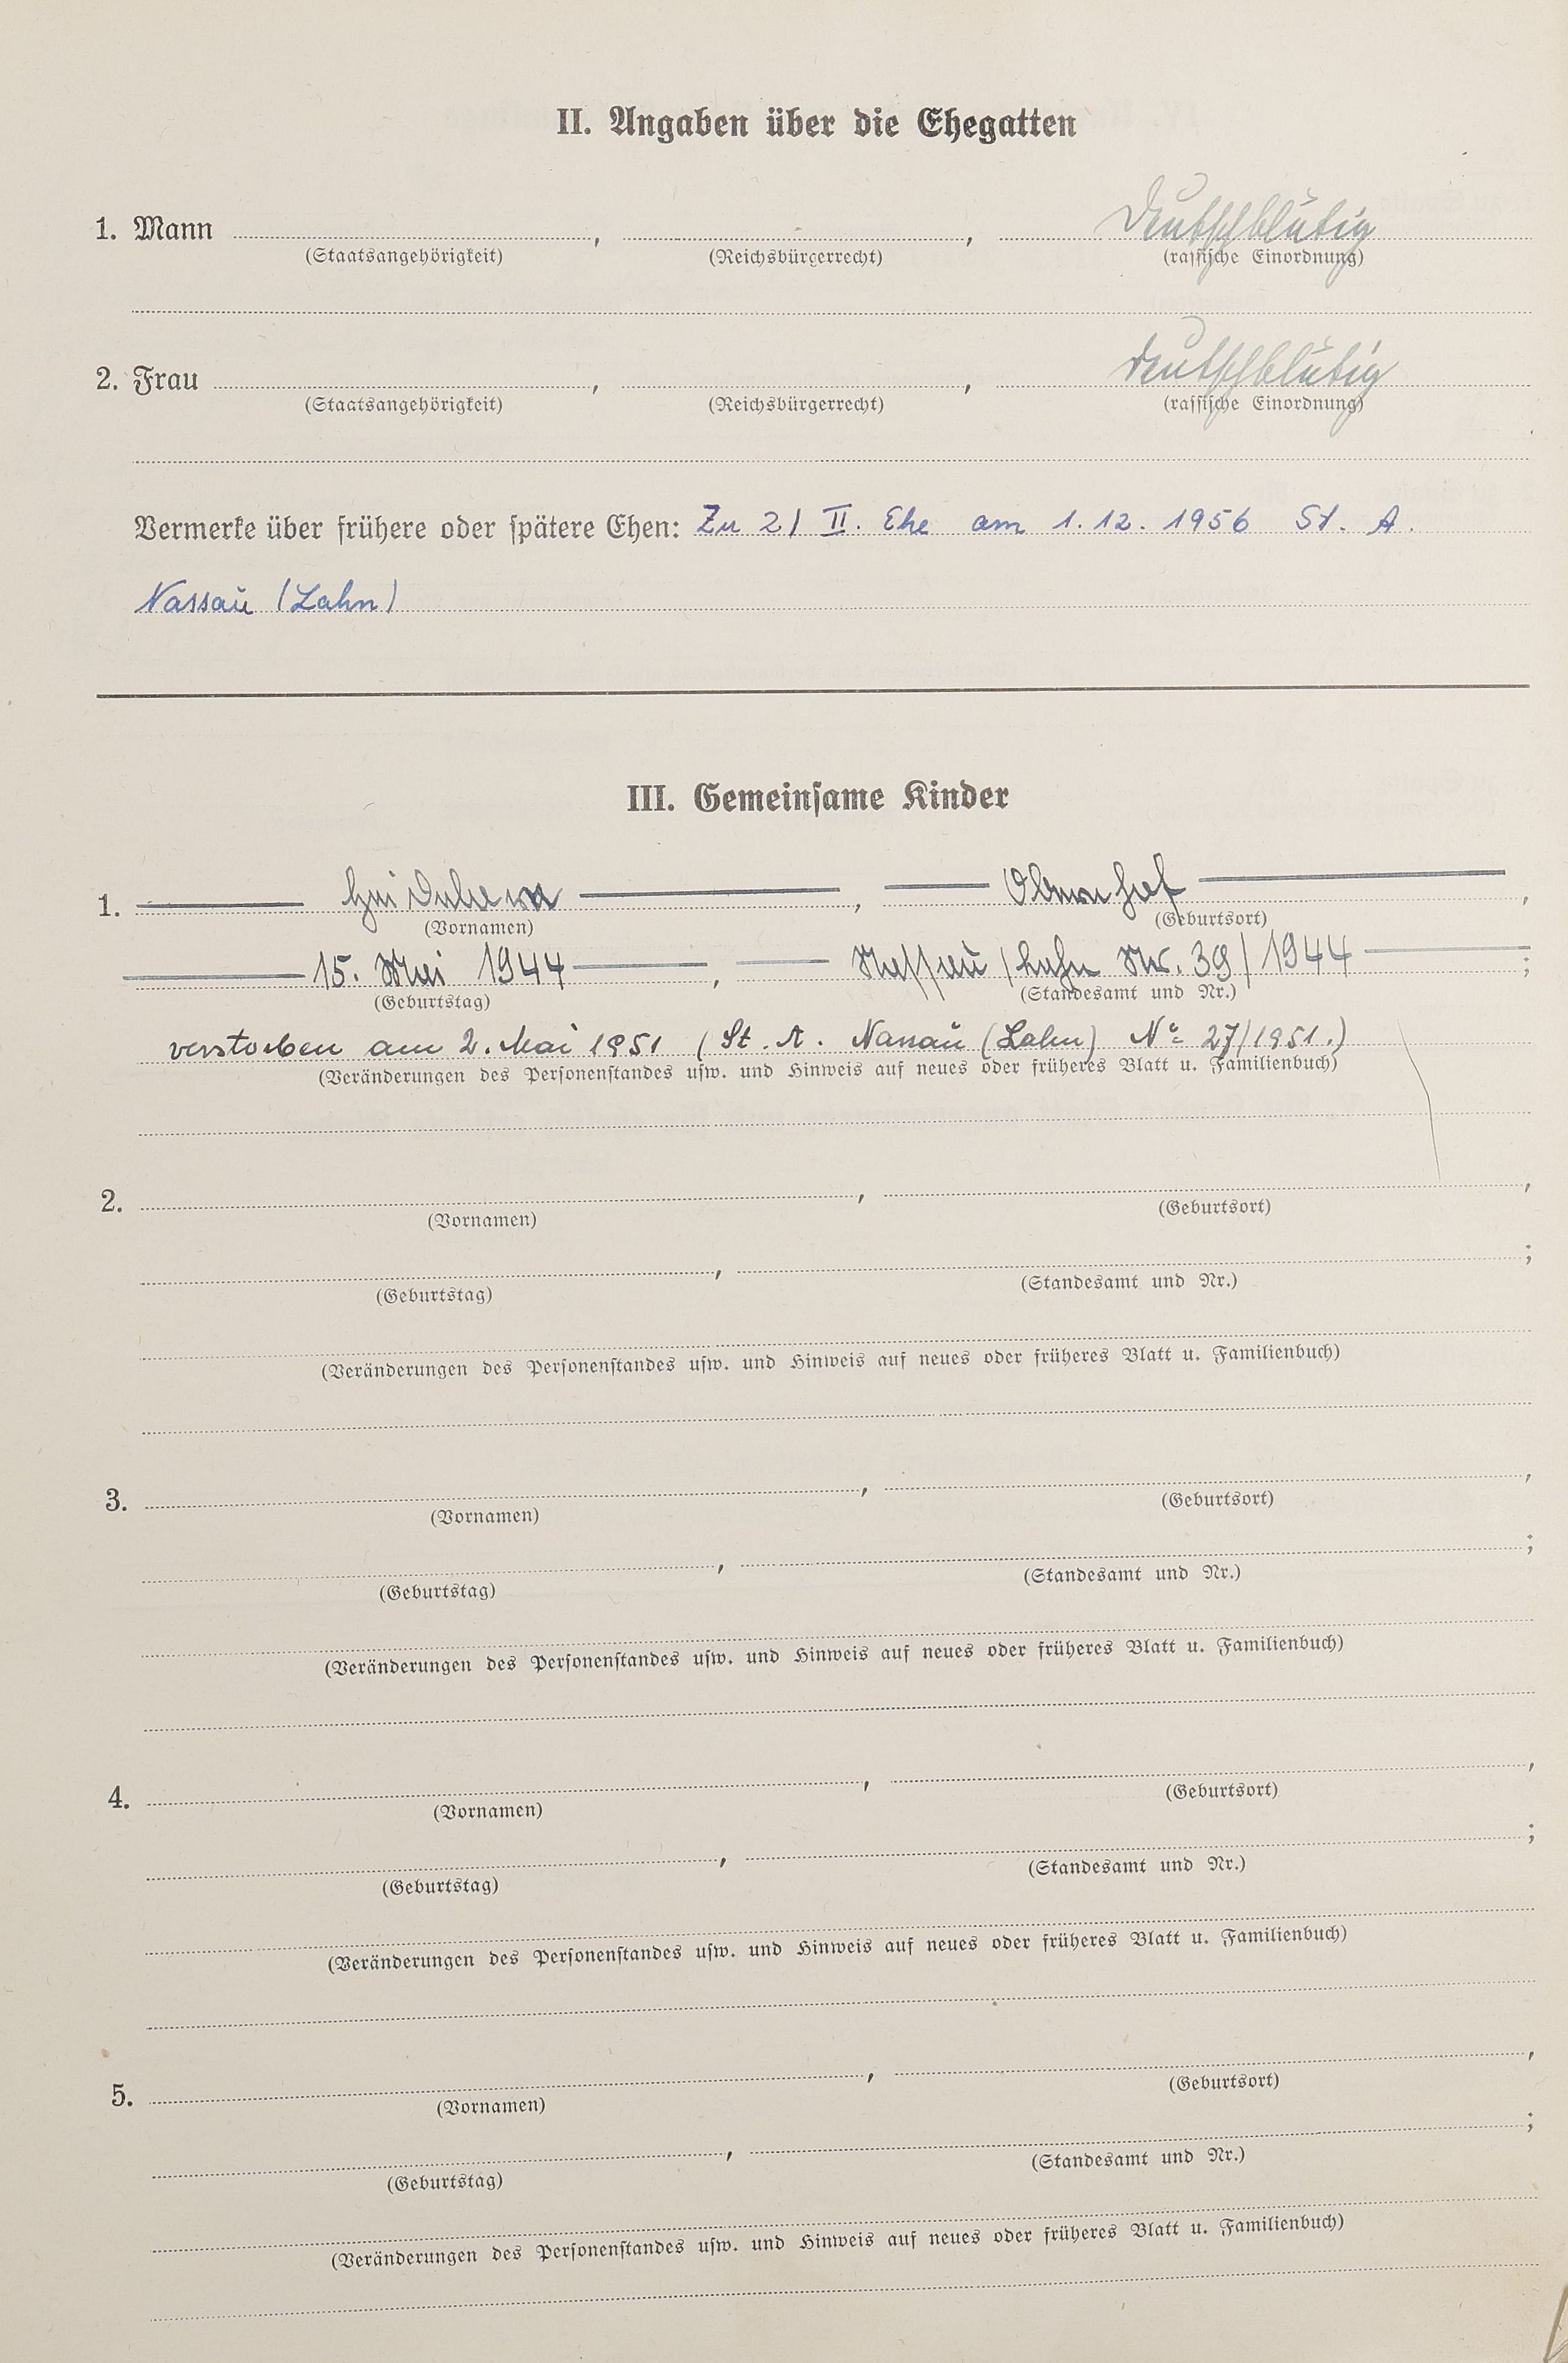 II. Angaben über die Ehegatten
1. Mann , , deutschblütig
(Staatsangehörigkeit) (Reichsbürgerrecht) (rassische Einordnung)
2. Frau , , deutschblütig
(Staatsangehörigkeit) (Reichsbürgerrecht) (rassische Einordnung)
Vermerke über frühere oder spätere Ehen: Zu 2) II. Ehe am 1.12.1956 St. A.
Nassau (Lahn)
III. Gemeinsame Kinder
1. , Obernhof ,
(Vornamen) (Geburtsort)
15. Mai 1944 , Nassau/Lahn Nr. 39/1944 ;
(Geburtstag) (Standesamt und Nr.)
verstorben am 2. Mai 1951 (St. A. Nassau (Lahn) No 27/1951.)
(Veränderungen des Personenstandes usw. und Hinweis auf neues oder früheres Blatt u. Familienbuch)
2. , ,
(Vornamen) (Geburtsort)
, ;
(Geburtstag) (Standesamt und Nr.)
(Veränderungen des Personenstandes usw. und Hinweis auf neues oder früheres Blatt u. Familienbuch)
3. , ,
(Vornamen) (Geburtsort)
, ;
(Geburtstag) (Standesamt und Nr.)
(Veränderungen des Personenstandes usw. und Hinweis auf neues oder früheres Blatt u. Familienbuch)
4. , ,
(Vornamen) (Geburtsort)
, ;
(Geburtstag) (Standesamt und Nr.)
(Veränderungen des Personenstandes usw. und Hinweis auf neues oder früheres Blatt u. Familienbuch)
5. , ,
(Vornamen) (Geburtsort)
, ;
(Geburtstag) (Standesamt und Nr.)
(Veränderungen des Personenstandes usw. und Hinweis auf neues oder früheres Blatt u. Familienbuch)